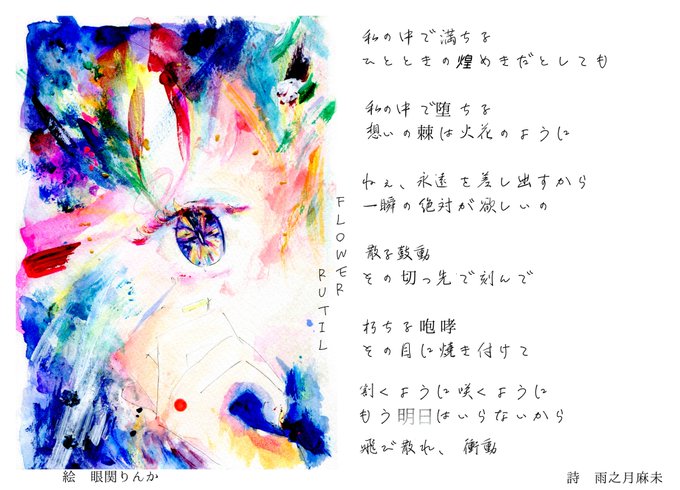 FLOWER
RUTIL
私の中で満ちる
ひとときの煌めきだとしても
私の中で堕ちる
想いの棘は火花のように
ねぇ、永遠を差し出すから
一瞬の絶対が欲しいの
散る鼓動
その切っ先で刻んで
朽ちる咆哮
その目に焼き付けて
割くように咲くように
もう明日はいらないから
飛び散れ、衝動
絵 眼関りんか
詩 雨之月麻未